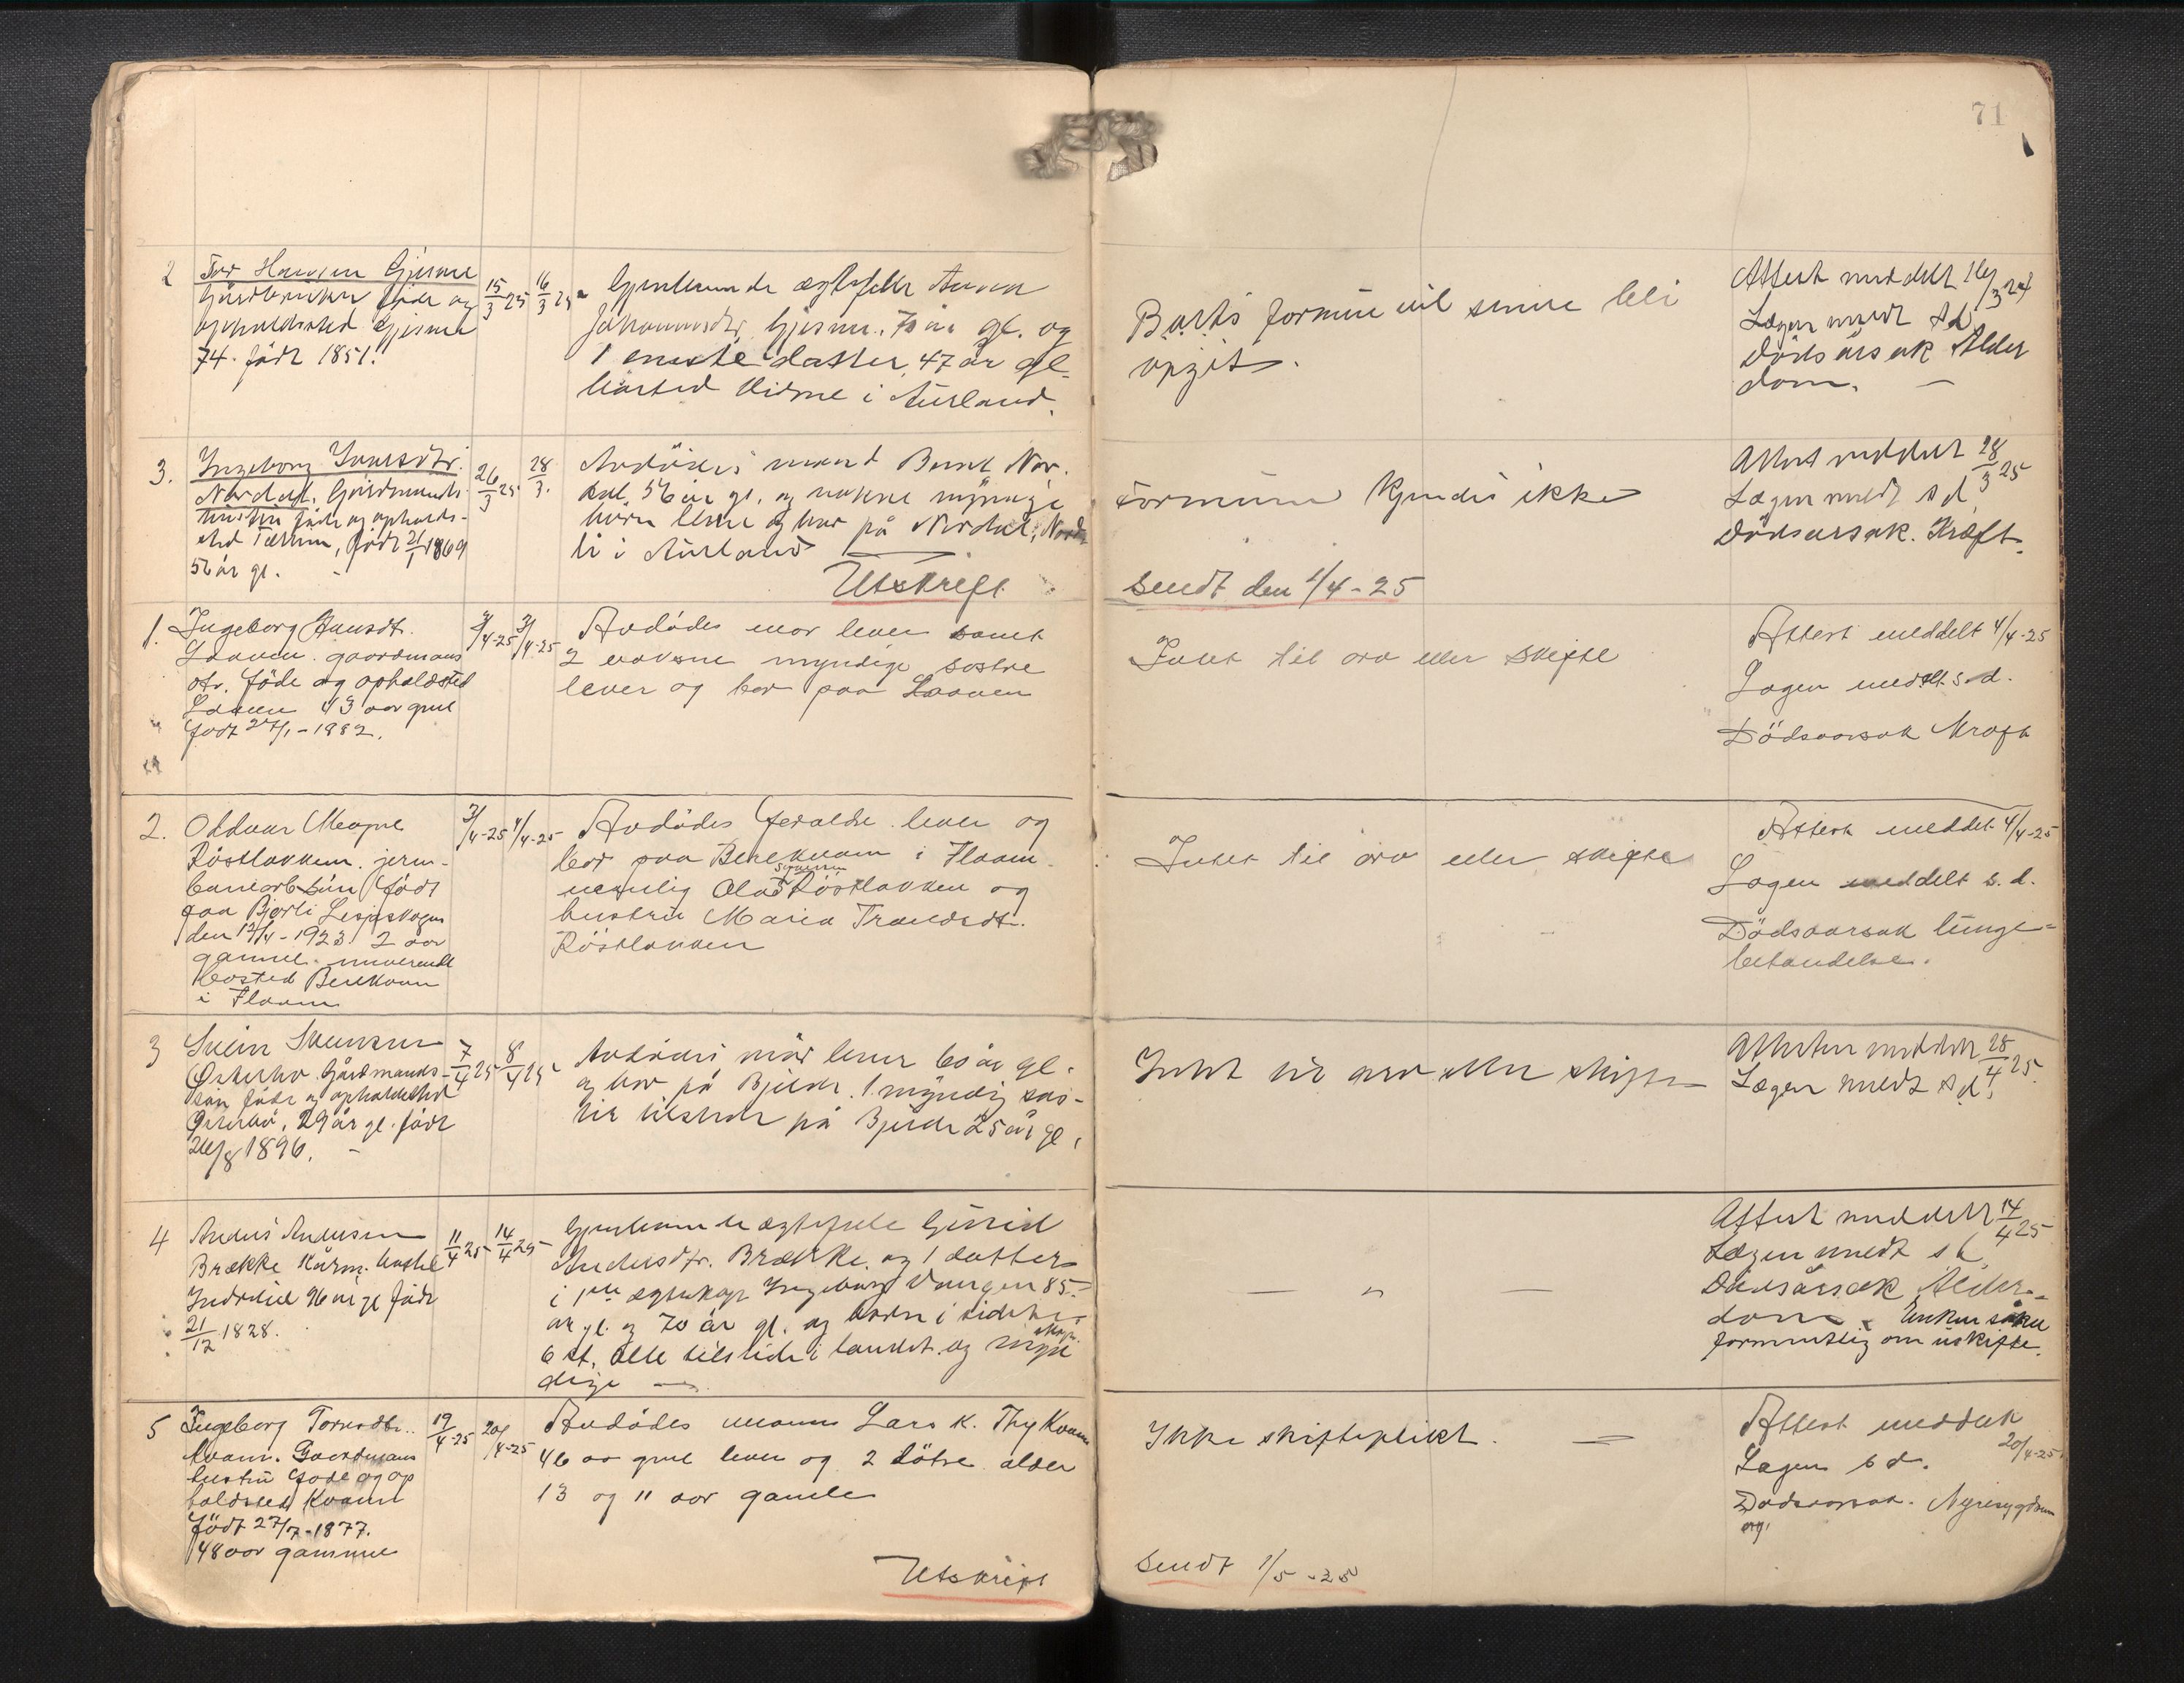 71
2 Ivar Hansen Gjerme
Gårdbruker føde og
opholdssted Gjerme
74. født 1851.
15/3 25 16/3 25
Gjenlevende ægtefelle Anna
Johannesdtr. Gjerme. 70 år gl. og
1 eneste datter, 47 år gl.
bosted Vidme i Aurland.
Boets formue vil senere bli
opgit.
Attest meddelt 16/3 24
Lægen meldt s d
Dödsårsak Alder
dom. —
3. Ingeborg Iversdtr.
Nordal. Gårdmands
hustru føde og opholds-
sted, født 21/1 1869
56 år gl.
26/3 25 28/3.
Avdödes mand Bernt Nor.
dal, 56 år gl. og voksne myndige
börn lever og bor på Nordal,
li i Aurland
Utskrift
Formuen kjendes ikke
sendt den 1/4 - 25
Attest meddelt 28/3 25
Lægen meldt s d
Dödsarsak. Kræft.
1. Ingeborg Hansdt.
Laaven. gaardmans
dtr. föde og opholdsted
Laaven 43 aar gml
født 27/1 - 1882.
3/4-25 3/4-25
Avdödes mor lever samt
2 voksne myndige søstre
lever og bor paa Laaven
Intet til arv eller skifte
Attest meddelt 4/4-25
Lægen meddelt s. d.
Dödsaarsak Kræft
2. Oddvar Magne
Röstlökken. jern-
banearb. sön født
paa Bjorli Lesjaskogen
den 12/4 - 1923 2 aar
gammel. nuværende
bosted Berekvam
i Flaam
3/4-25 4/4-25
Avdödes foraldre lever og
bor paa Berekvam i Flaam
nemlig Olav Röstlökken og
hustru Maria Trondsdt.
Röstlökken
Intet til arv eller skifte
Attest meddelt 4/4-25
Lægen meddelt s. d.
Dödsaarsak lunge-
betændelse.
3 Svein Sveinsen
Østerbø. Gårdmands-
søn føde og opholdssted
Østerbö, 29 år gl. født
26/8 1896. —
7/4 25 8/4 25
Avdödes mor lever 60 år gl.
og bor på Bjelde. 1 myndig søs-
ter tilstede på Bjelde 25 år gl.
Intet til arv eller skifte
Attesten meddelt 28/4 25.
Lægen meldt s d.
4 Anders Andersen
Brække Kårm. bosted
Indrelid 96 år gl. født
21/12 1828.
11/4 25 14/4 25
Gjenlevende ægtefelle Gurid
Andersdtr. Brække. og 1 datter
i 1ste ægteskap Ingeborg Vangen 85.
år gl. og 70 år gl. og børn i sidste
6 st. alle tilstede i landet og myn
dige —
— " —
Attest meddelt 14/4 25
Lægen meldt s d
Dödsårsak Alder-
dom. Enken søker
formentlig om uskifte.
5 Ingeborg Torsdtr.
Kvam. Gaardmans
hustru føde og op
holdsted Kvam
født 27/7 - 1877.
48 aar gammel
19/4-25 20/4-25
Avdödes mann Lars K. Thy Kvam
46 aar gml lever og 2 døtre alder
13 og 11 aar gamle
Utskrift
Ikke skiftepliktl. =
sendt 1/5 - 25
Attest meddelt
20/4-25.
Lægen s d.
Dødsaarsak. Nyresygdom